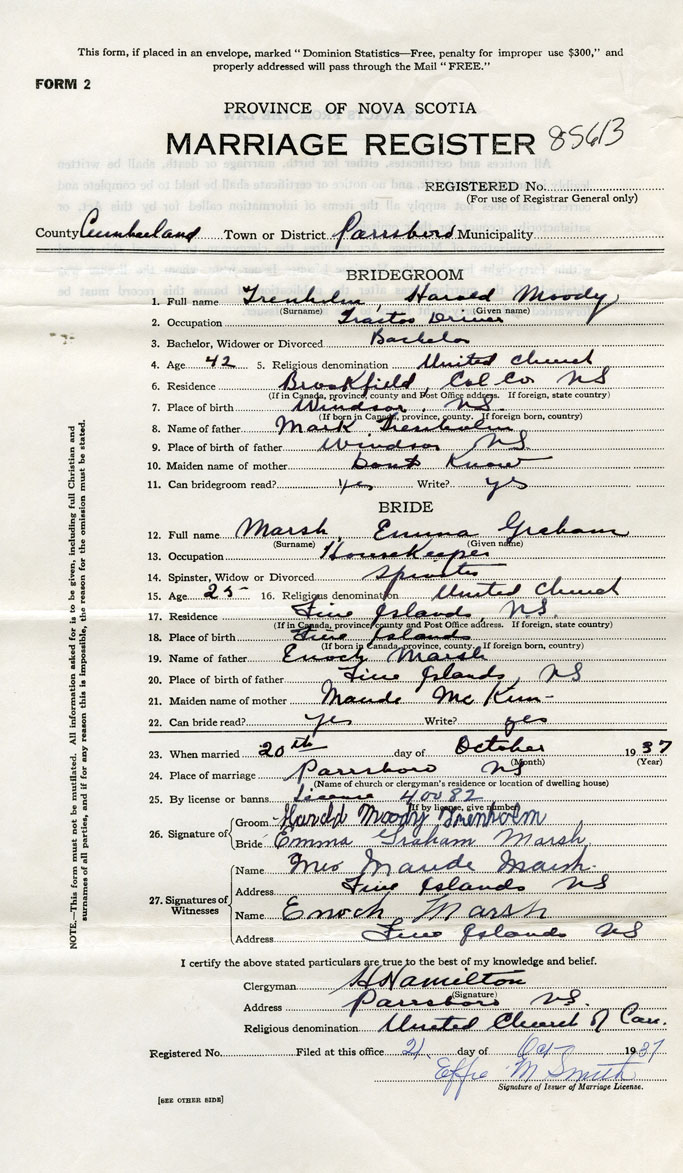 This form, if placed in an envelope, marked "Dominion Statistics—Free, penalty for improper use $300," and
properly addressed will pass through the Mail "FREE."
FORM 2
PROVINCE OF NOVA SCOTIA
MARRIAGE REGISTER 85613
REGISTERED No.
(For use of Registrar General only)
County Cumberland Town or District Parrsboro Municipality
BRIDEGROOM
1. Full name Trenholm, Harold Moody
(Surname) (Given name)
2. Occupation Tractor Driver
3. Bachelor, Widower or Divorced Bachelor
4. Age 42 5. Religious denomination United Church
6. Residence Brookfield, Col Co NS
(If in Canada, province, county and Post Office address. If foreign, state country)
7. Place of birth Windsor, NS.
(If born in Canada, province, county. If foreign born, country)
8. Name of father Mark Trenholm
9. Place of birth of father Windsor NS
10. Maiden name of mother Dont Know
11. Can bridegroom read? yes Write? yes
BRIDE
12. Full name Marsh Emma Graham
(Surname) (Given name)
13. Occupation Housekeeper
14. Spinster, Widow or Divorced Spinster
15. Age 25 16. Religious denomination United Church
17. Residence Five Islands, NS.
(If in Canada, province county and Post Office address. If foreign, state country)
18. Place of birth Five Islands
(If born in Canada, province, county. If foreign born, country)
19. Name of father Enoch Marsh
20. Place of birth of father Five Islands, NS
21. Maiden name of mother Maude McKim
22. Can bride read? yes Write? yes
23. When married 20th day of October 1937
(Month) (Year)
24. Place of marriage Parrsboro NS
(Name of church or clergyman's residence or location of dwelling house)
25. By license or banns License 40082
(If by license, give number)
26. Signature of Groom Harold Moody Trenholm
Bride Emma Graham Marsh
27. Signatures of Witnesses
Name Mrs Maude Marsh.
Address Five Islands NS
Name Enoch Marsh
Address Five Islands NS
I certify the above stated particulars are true to the best of my knowledge and belief.
Clergyman Hamilton
(Signature)
Address Parrsboro NS.
Religious denomination United Church of Can.
Registered No. Filed at this office 21 day of Oct 1937
Effie M Smith
Signature of Issuer of Marriage License.
[SEE OTHER SIDE]
NOTE.—This form must not be mutilated. All information asked for is to be given, including full Christian and
surnames of all parties, and if for any reason this is impossible, the reason for the omission must be stated.